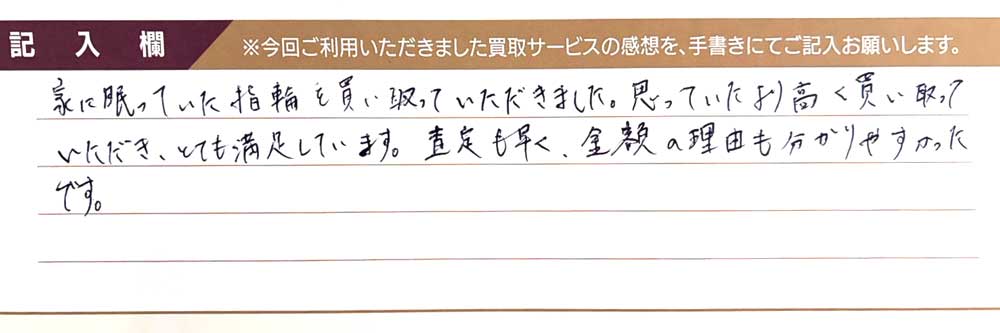 記入欄 ※今回ご利用いただきました買取サービスの感想を、手書きにてご記入お願いします。
家に眠っていた指輪を買い取っていただきました。思っていたより高く買い取って
いただき、とても満足しています。査定も早く、金額の理由も分かりやすかった
です。